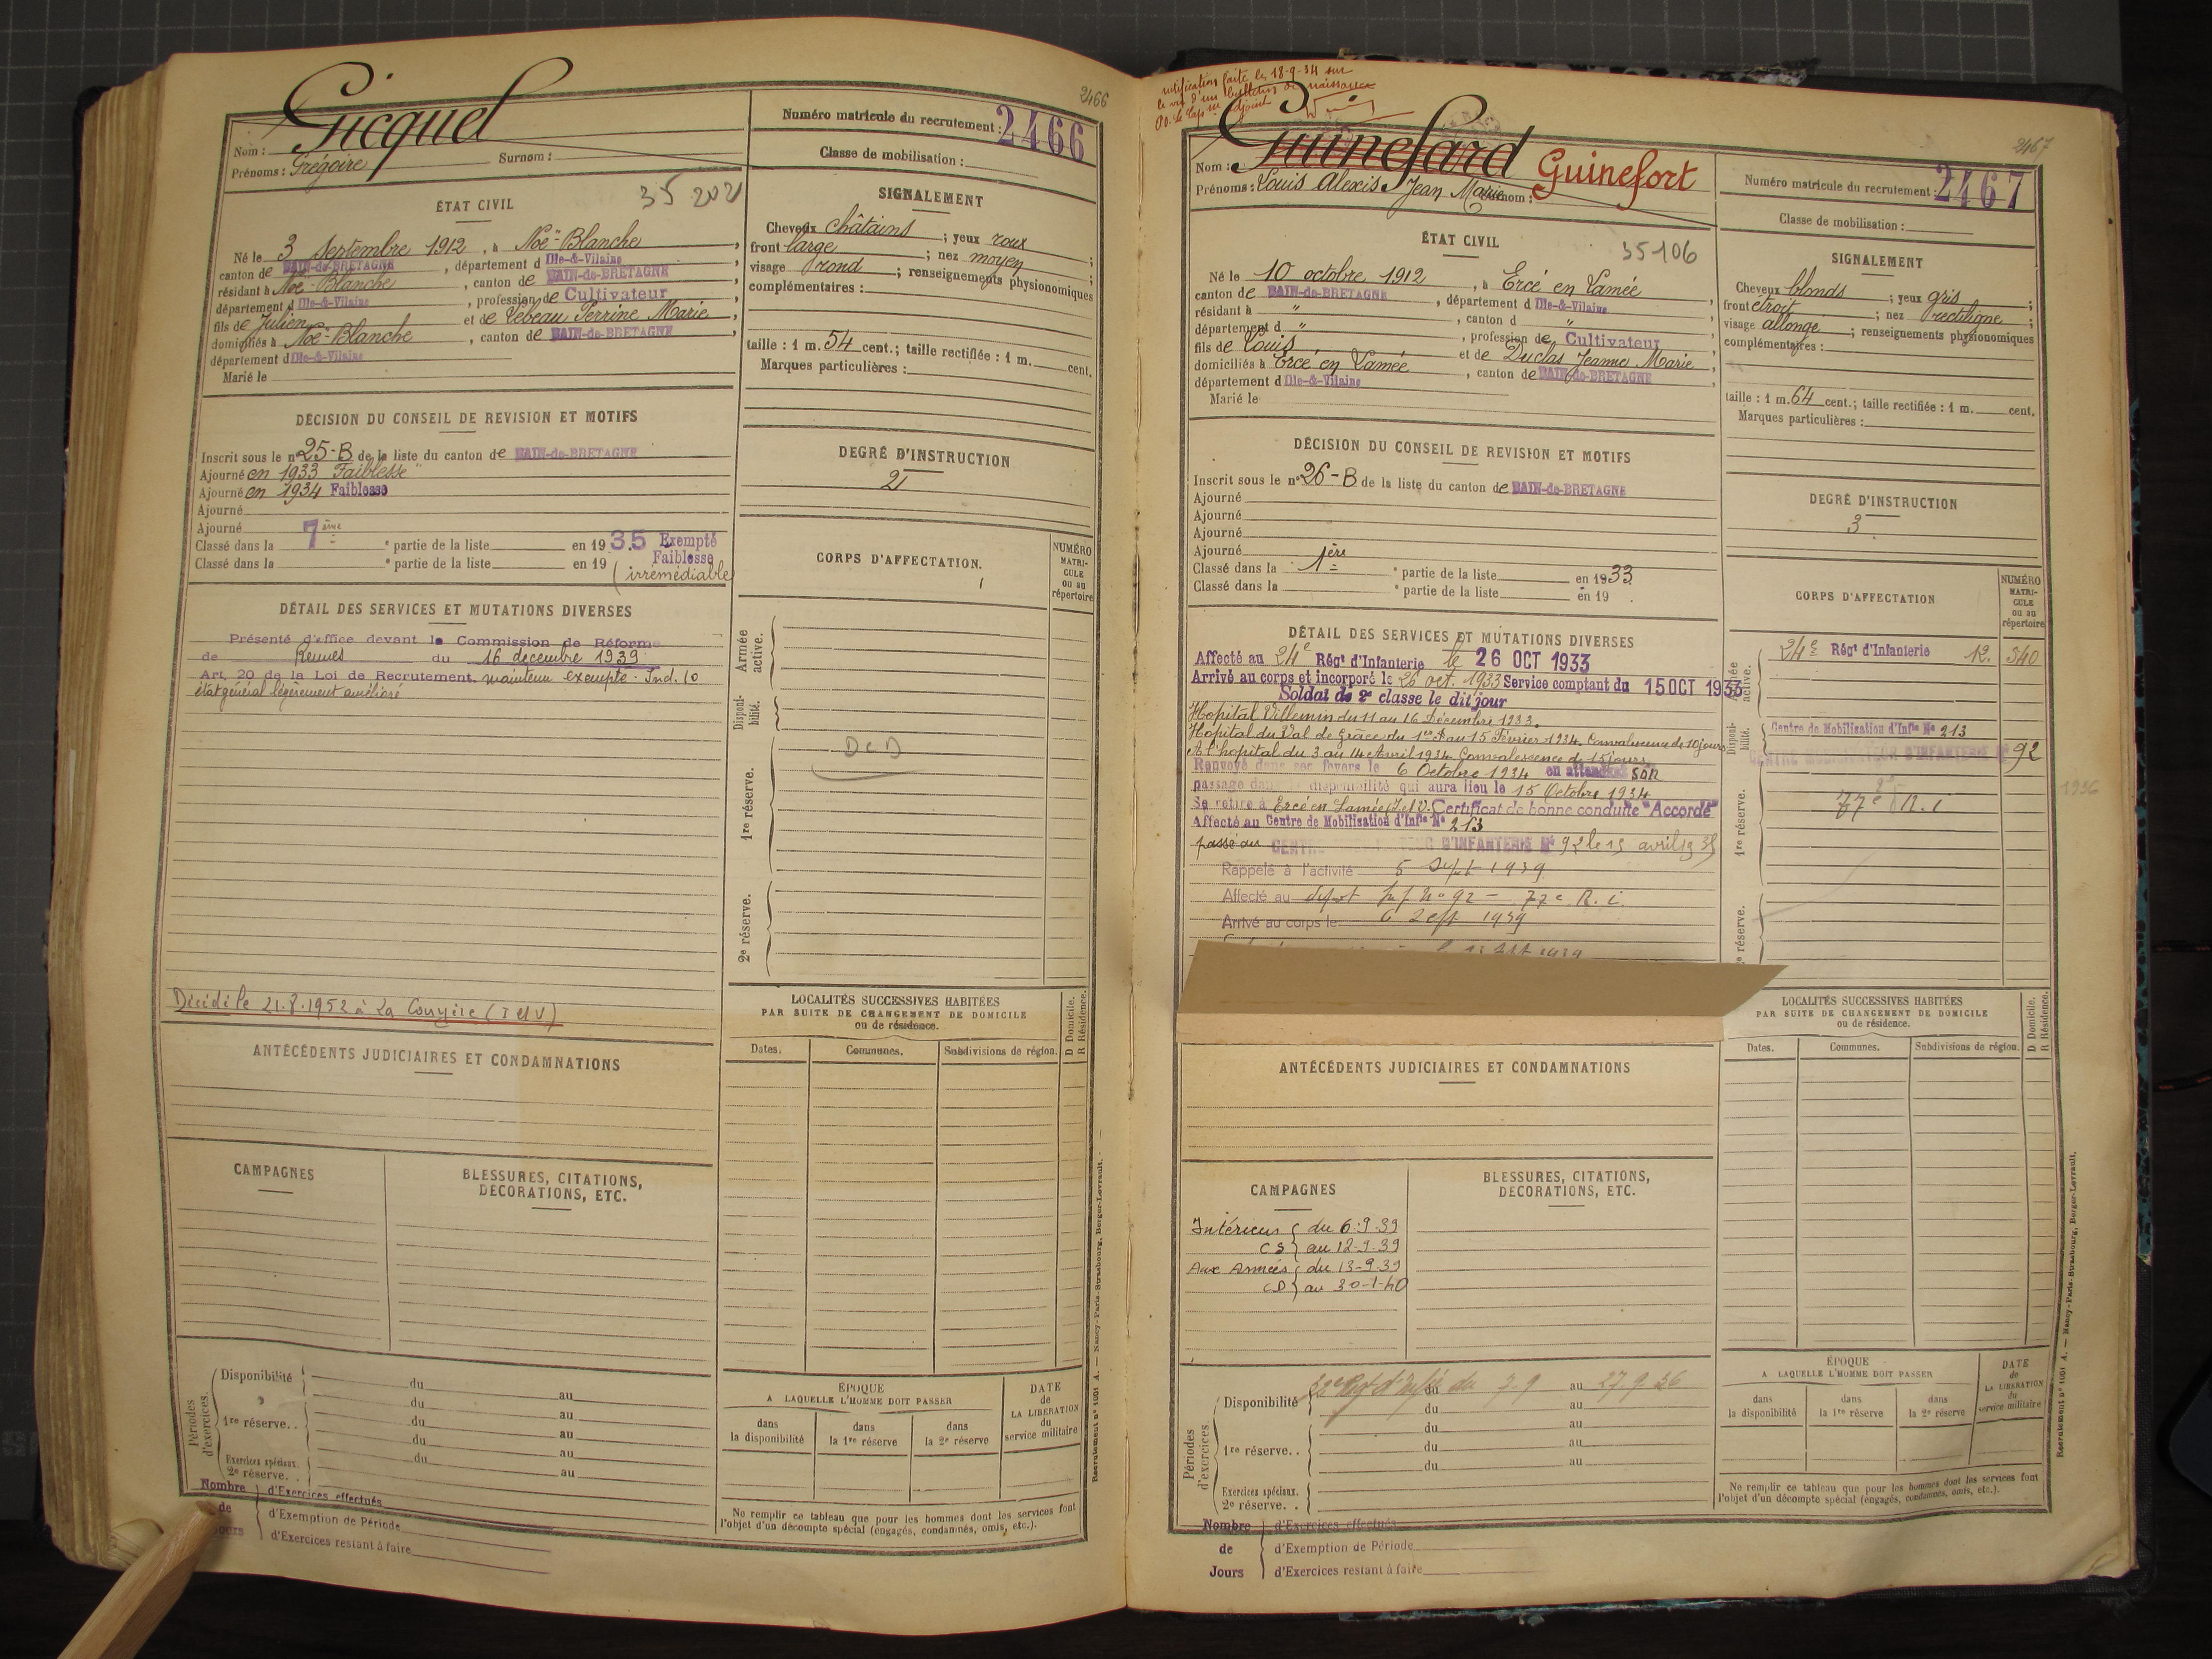 2466
Gicquel
Nom :
Prénoms : Grégoire Surnom :
Numéro matricule du recrutement : 2466
Classe de mobilisation :
ÉTAT CIVIL
35 202
Né le 3 Septembre 1912, à Noë-Blanche,
canton de BAIN-de-BRETAGNE, département d Ille-&-Vilaine
résidant à Noë-Blanche, canton de BAIN-de-BRETAGNE
département d Ille-&-Vilaine, profession de Cultivateur
fils de Julien et de Lebeau Perrine Marie,
domiciliés à Noë-Blanche, canton de BAIN-de-BRETAGNE,
département d Ille-&-Vilaine
Marié le
SIGNALEMENT
Cheveux châtains ; yeux roux
front large ; nez moyen ;
visage rond ; renseignements physionomiques
complémentaires :
taille : 1 m. 54 cent.; taille rectifiée : 1 m. cent.
Marques particulières :
DÉCISION DU CONSEIL DE REVISION ET MOTIFS
Inscrit sous le n° 25-B de la liste du canton de BAIN-de-BRETAGNE
Ajourné en 1933 "Faiblesse"
Ajourné en 1934 Faiblesse
Ajourné
Ajourné
Classé dans la 7ème partie de la liste en 1935 Exempté
Faiblesse
Classé dans la e partie de la liste en 19 (irrémédiable)
DEGRÉ D'INSTRUCTION
2
CORPS D'AFFECTATION.
NUMÉRO MATRI-CULE ou au répertoire
DÉTAIL DES SERVICES ET MUTATIONS DIVERSES
Présenté d'office devant la Commission de Réforme
de Rennes du 16 décembre 1939
Art. 20 de la Loi de Recrutement. maintenu exempté - Ind. 10
état général légèrement amélioré
Armée active.
Disponi-bilité.
DCD
1re réserve.
2e réserve.
Décédé le 21.8.1952 à La Couyère (I et V)
ANTÉCÉDENTS JUDICIAIRES ET CONDAMNATIONS
LOCALITÉS SUCCESSIVES HABITÉES
PAR SUITE DE CHANGEMENT DE DOMICILE
ou de résidence.
D Domicile.
R Résidence.
Dates. Communes. Subdivisions de région.
CAMPAGNES
BLESSURES, CITATIONS,
DÉCORATIONS, ETC.
Périodes d'exercices.
Disponibilité du au
du au
1re réserve. . du au
du au
Exercices spéciaux. du au
2e réserve. .
ÉPOQUE
A LAQUELLE L'HOMME DOIT PASSER
dans la disponibilité
dans la 1re réserve
dans la 2e réserve
DATE de LA LIBÉRATION du service militaire
Ne remplir ce tableau que pour les hommes dont les services font
l'objet d'un décompte spécial (engagés, condamnés, omis, etc.).
Nombre d'Exercices effectués
de d'Exemption de Période
Jours d'Exercices restant à faire
Recrutement n° 1051 A. — Nancy-Paris-Strasbourg, Berger-Levrault.
rectification faite le 18-9-34 sur
le vu d'un bulletin de naissance
2467
Guinefard Guinefort
Nom :
Prénoms : Louis Alexis Jean Marie Surnom :
Numéro matricule du recrutement : 2467
Classe de mobilisation :
ÉTAT CIVIL
35106
Né le 10 octobre 1912, à Ercé en Lamée
canton de BAIN-de-BRETAGNE, département d Ille-&-Vilaine
résidant à " , canton d "
département d " , profession de Cultivateur
fils de Louis et de Duclas Jeanne Marie
domiciliés à Ercé en Lamée, canton de BAIN-de-BRETAGNE,
département d Ille-&-Vilaine
Marié le
SIGNALEMENT
Cheveux blonds ; yeux gris ;
front étroit ; nez rectiligne ;
visage allongé ; renseignements physionomiques
complémentaires :
taille : 1 m. 64 cent.; taille rectifiée : 1 m. cent.
Marques particulières :
DÉCISION DU CONSEIL DE REVISION ET MOTIFS
Inscrit sous le n° 26-B de la liste du canton de BAIN-de-BRETAGNE
Ajourné
Ajourné
Ajourné
Ajourné
Classé dans la 1ère partie de la liste en 1933
Classé dans la e partie de la liste en 19 .
DEGRÉ D'INSTRUCTION
3
CORPS D'AFFECTATION
NUMÉRO MATRI-CULE ou au répertoire
DÉTAIL DES SERVICES ET MUTATIONS DIVERSES
Affecté au 24e Régt d'Infanterie le 26 OCT 1933
Arrivé au corps et incorporé le 26 oct. 1933 Service comptant du 15 OCT 1933
Soldat de 2e classe le dit jour
Hopital Villemin du 11 au 16 Décembre 1933.
Hopital du Val de Grâce du 1er au 15 Février 1934. Convalescence de 10 jours
A l'hopital du 3 au 14 Avril 1934 Convalescence de 15 jours
Renvoyé dans ses foyers le 6 Octobre 1934 en attendant son
passage dans la disponibilité qui aura lieu le 15 Octobre 1934
Se retire à Ercé en Lamée (I. et V. Certificat de bonne conduite "Accordé"
Affecté au Centre de Mobilisation d'Infie N° 213
passé au CENTRE MOBILISATEUR D'INFANTERIE N° 92 le 15 avril 19 35
Rappelé à l'activité 5 Sept 1939
Affecté au dépot Inf. n° 92 - 77e R.i.
Arrivé au corps le 6 Sept 1939
Armée active.
24e Régt d'Infanterie 12. 340
Disponi-bilité.
Centre de Mobilisation d'Infie N° 213
CENTRE MOBILISATEUR D'INFANTERIE N° 92
1936
1re réserve.
77e R.i
2e réserve.
ANTÉCÉDENTS JUDICIAIRES ET CONDAMNATIONS
LOCALITÉS SUCCESSIVES HABITÉES
PAR SUITE DE CHANGEMENT DE DOMICILE
ou de résidence.
D Domicile.
R Résidence.
Dates. Communes. Subdivisions de région.
CAMPAGNES
BLESSURES, CITATIONS,
DÉCORATIONS, ETC.
Intérieur { du 6.9.39
CS } au 12-9-39
Aux Armées { du 13-9-39
CD } au 30-1-40
Périodes d'exercices
Disponibilité du 7.9 au 27 9 36
du au
du au
1re réserve. . du au
du au
Exercices spéciaux.
2e réserve. .
ÉPOQUE
A LAQUELLE L'HOMME DOIT PASSER
dans la disponibilité
dans la 1re réserve
dans la 2e réserve
DATE de LA LIBÉRATION du service militaire
Ne remplir ce tableau que pour les hommes dont les services font
l'objet d'un décompte spécial (engagés, condamnés, omis, etc.).
Nombre d'Exercices effectués
de d'Exemption de Période
Jours d'Exercices restant à faire
Recrutement n° 1051 A. — Nancy-Paris-Strasbourg, Berger-Levrault.